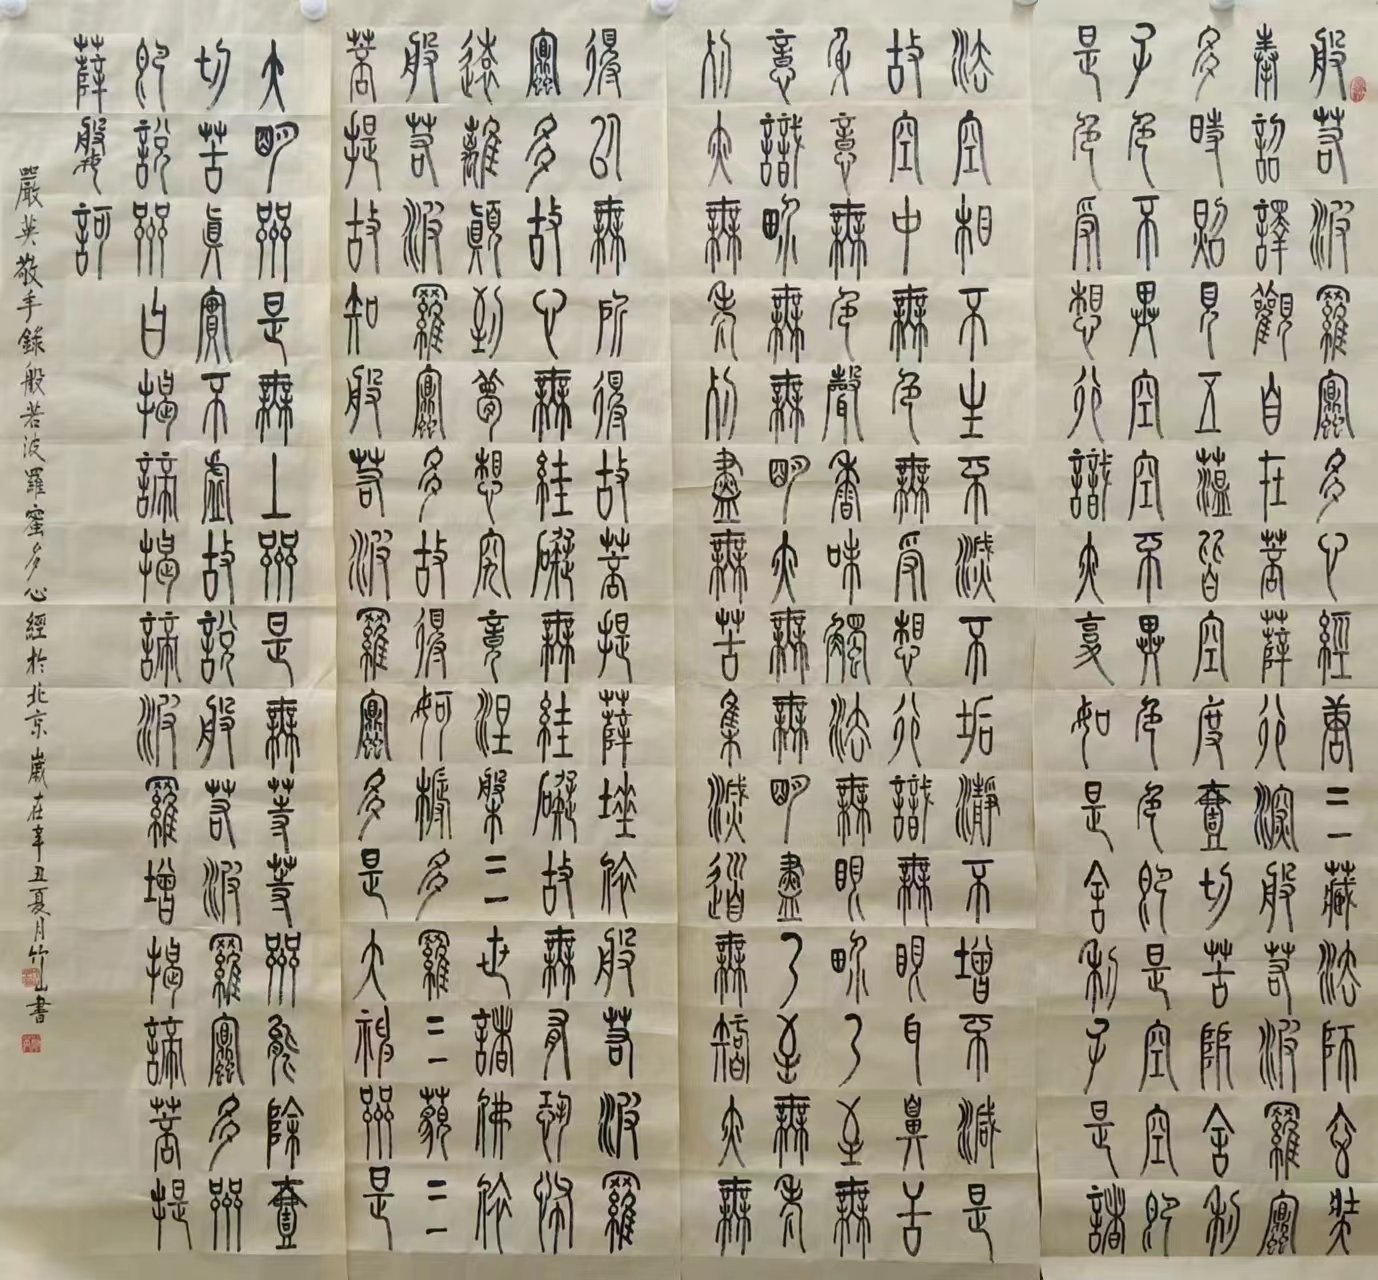 般若波羅蜜多心經唐三藏法師玄奘
奉詔譯觀自在菩薩行深般若波羅蜜
多時照見五蘊皆空度壹切苦厄舍利
子色不異空空不異色色即是空空即
是色受想行識亦复如是舍利子是諸
法空相不生不滅不垢瀞不增不減是
故空中無色無受想行識無眼耳鼻舌
身意無色聲香味觸法無眼界乃至無
意識界無無明亦無無明盡乃至無老
死亦無老死盡無苦集滅道無智亦無
得以無所得故菩提薩埵依般若波羅
蜜多故心無絓礙無絓礙故無有恐怖
遠離顛倒夢想究竟涅槃三世諸佛依
般若波羅蜜多故得阿耨多羅三藐三
菩提故知般若波羅蜜多是大神咒是
大明咒是無上咒是無等等咒能除壹
切苦真實不虛故說般若波羅蜜多咒
即說咒曰揭諦揭諦波羅增揭諦菩提
薩婆訶
嚴英敬手錄般若波羅蜜多心經於北京歲在辛丑夏月竹山書